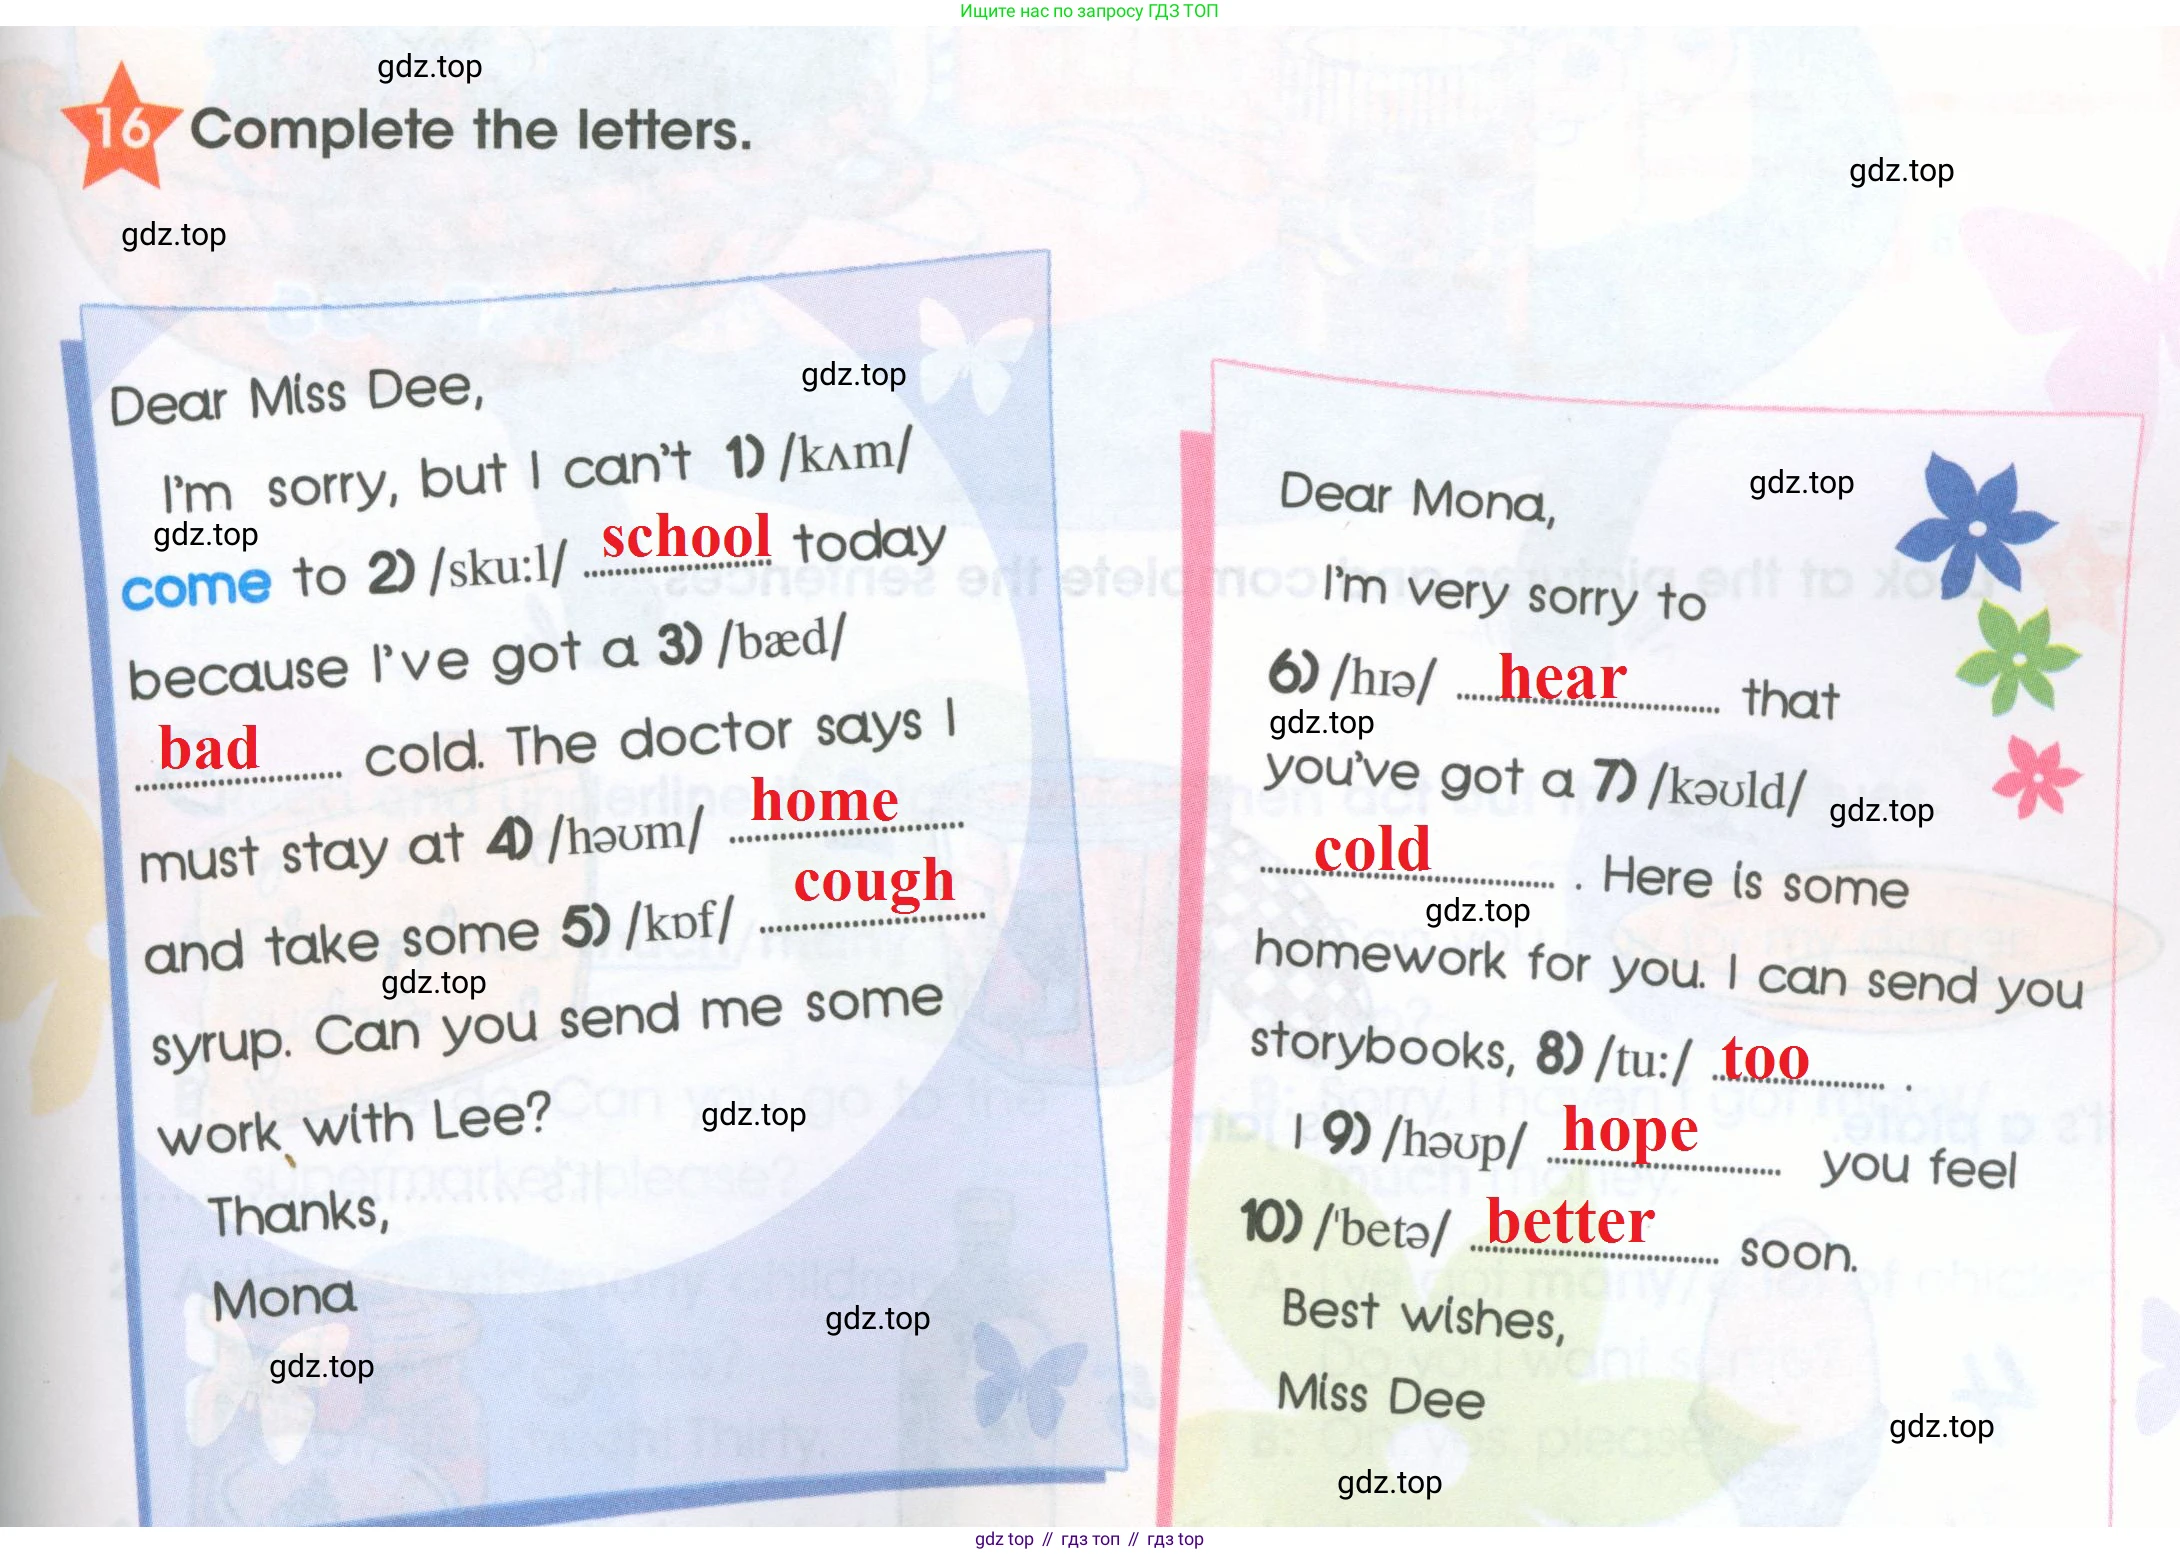 Ищите нас по запросу ГДЗ ТОП
gdz.top
16 Complete the letters.
gdz.top
gdz.top
Dear Miss Dee,
gdz.top
I'm sorry, but I can't 1) /kʌm/
gdz.top
come to 2) /sku:l/ school today
because I've got a 3) /bæd/
bad cold. The doctor says I
must stay at 4) /həʊm/ home
and take some 5) /kɒf/ cough
gdz.top
syrup. Can you send me some
work with Lee?
gdz.top
Thanks,
Mona
gdz.top
gdz.top
Dear Mona,
gdz.top
I'm very sorry to
6) /hɪə/ hear that
gdz.top
you've got a 7) /kəʊld/
gdz.top
cold . Here is some
gdz.top
homework for you. I can send you
storybooks, 8) /tu:/ too .
I 9) /həʊp/ hope you feel
10) /'betə/ better soon.
Best wishes,
Miss Dee
gdz.top
gdz.top
gdz top // гдз топ // гдз top